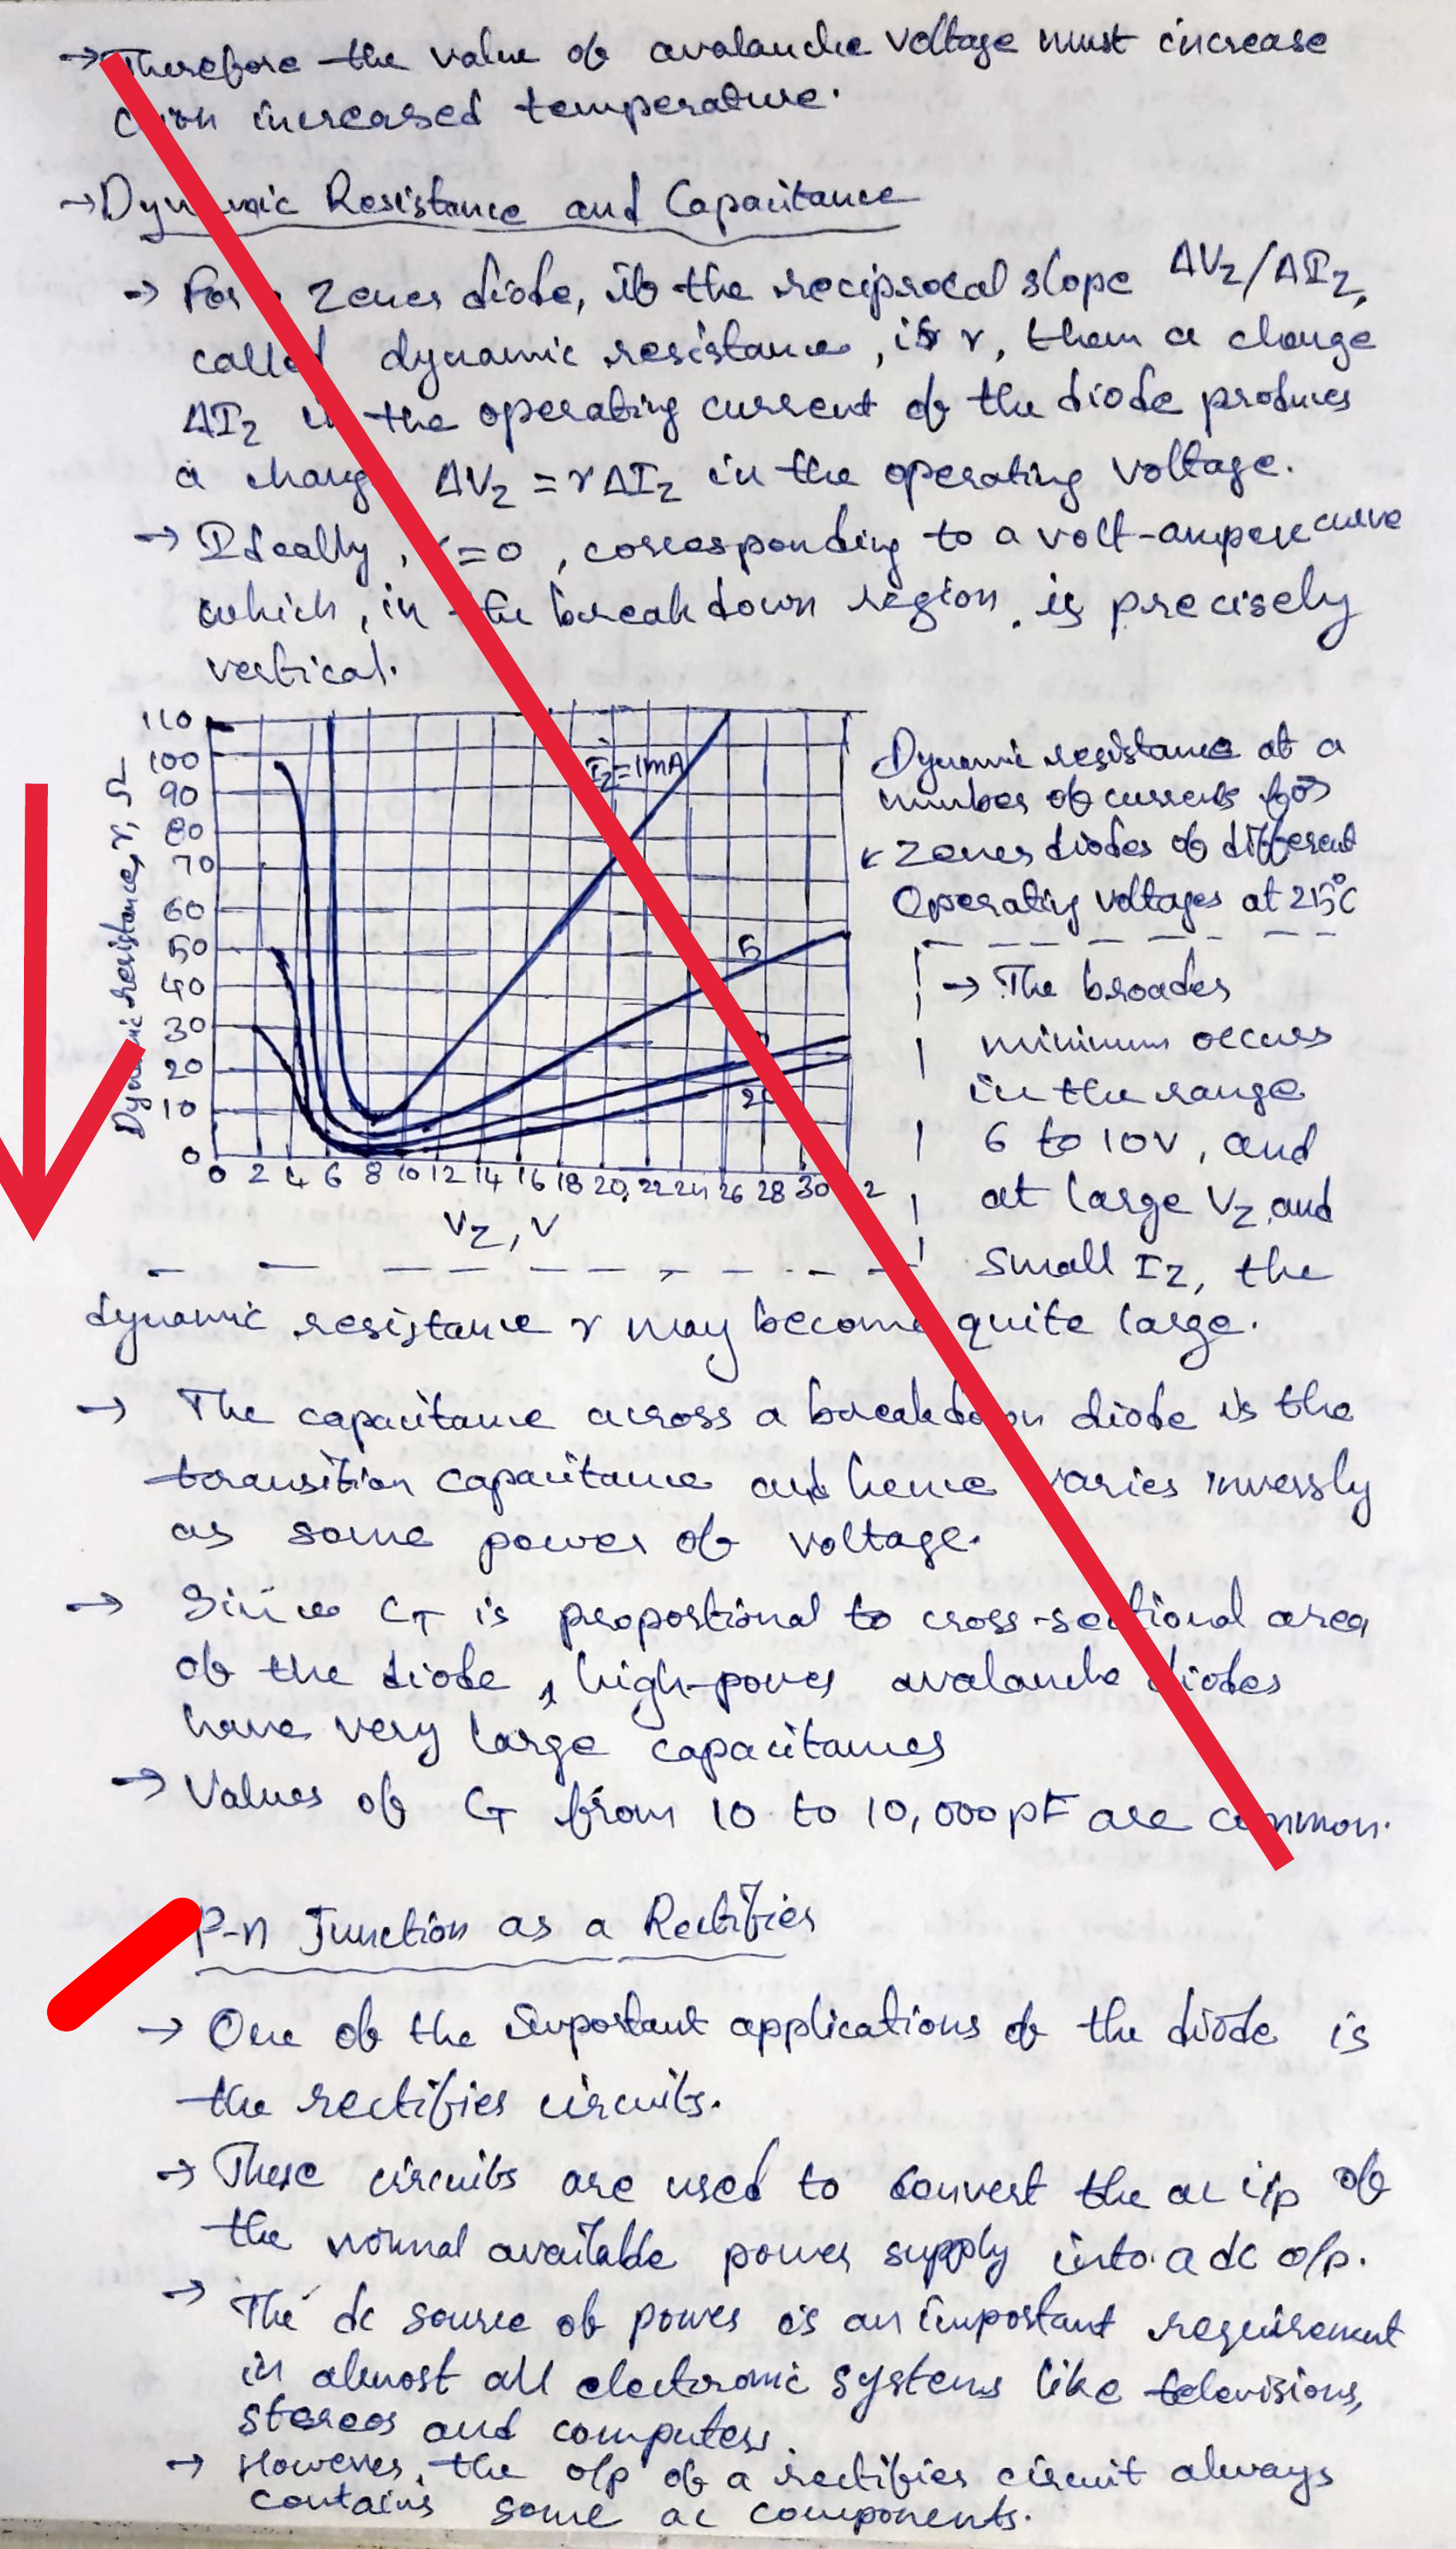 → Therefore the value of avalanche voltage must increase
with increased temperature.
→ Dynamic Resistance and Capacitance
→ For a Zener diode, if the reciprocal slope ΔVz/ΔIz,
called dynamic resistance, is r, then a change
ΔIz in the operating current of the diode produces
a change ΔVz = rΔIz in the operating voltage.
→ Ideally, r=0, corresponding to a volt-ampere curve
which, in the breakdown region, is precisely
vertical.
110
100
90
80
70
60
50
40
30
20
10
0
Dynamic resistance, r, Ω
Iz=1mA
5
20
0 2 4 6 8 10 12 14 16 18 20 22 24 26 28 30 32
Vz, V
Dynamic resistance at a
number of currents for
Zener diodes of different
Operating voltages at 25°C
→ The broader
minimum occurs
in the range
6 to 10V, and
at large Vz and
small Iz, the
dynamic resistance r may become quite large.
→ The capacitance across a breakdown diode is the
transition capacitance and hence varies inversly
as some power of voltage.
→ Since CT is proportional to cross-sectional area
of the diode, high-power avalanche diodes
have very large capacitances
→ Values of CT from 10 to 10,000pF are common.
P-n Junction as a Rectifier
→ One of the important applications of the diode is
the rectifier circuits.
→ These circuits are used to convert the ac i/p of
the normal available power supply into a dc o/p.
→ The dc source of power is an important requirement
in almost all electronic systems like televisions,
stereos and computers.
→ However, the o/p of a rectifier circuit always
contains some ac components.